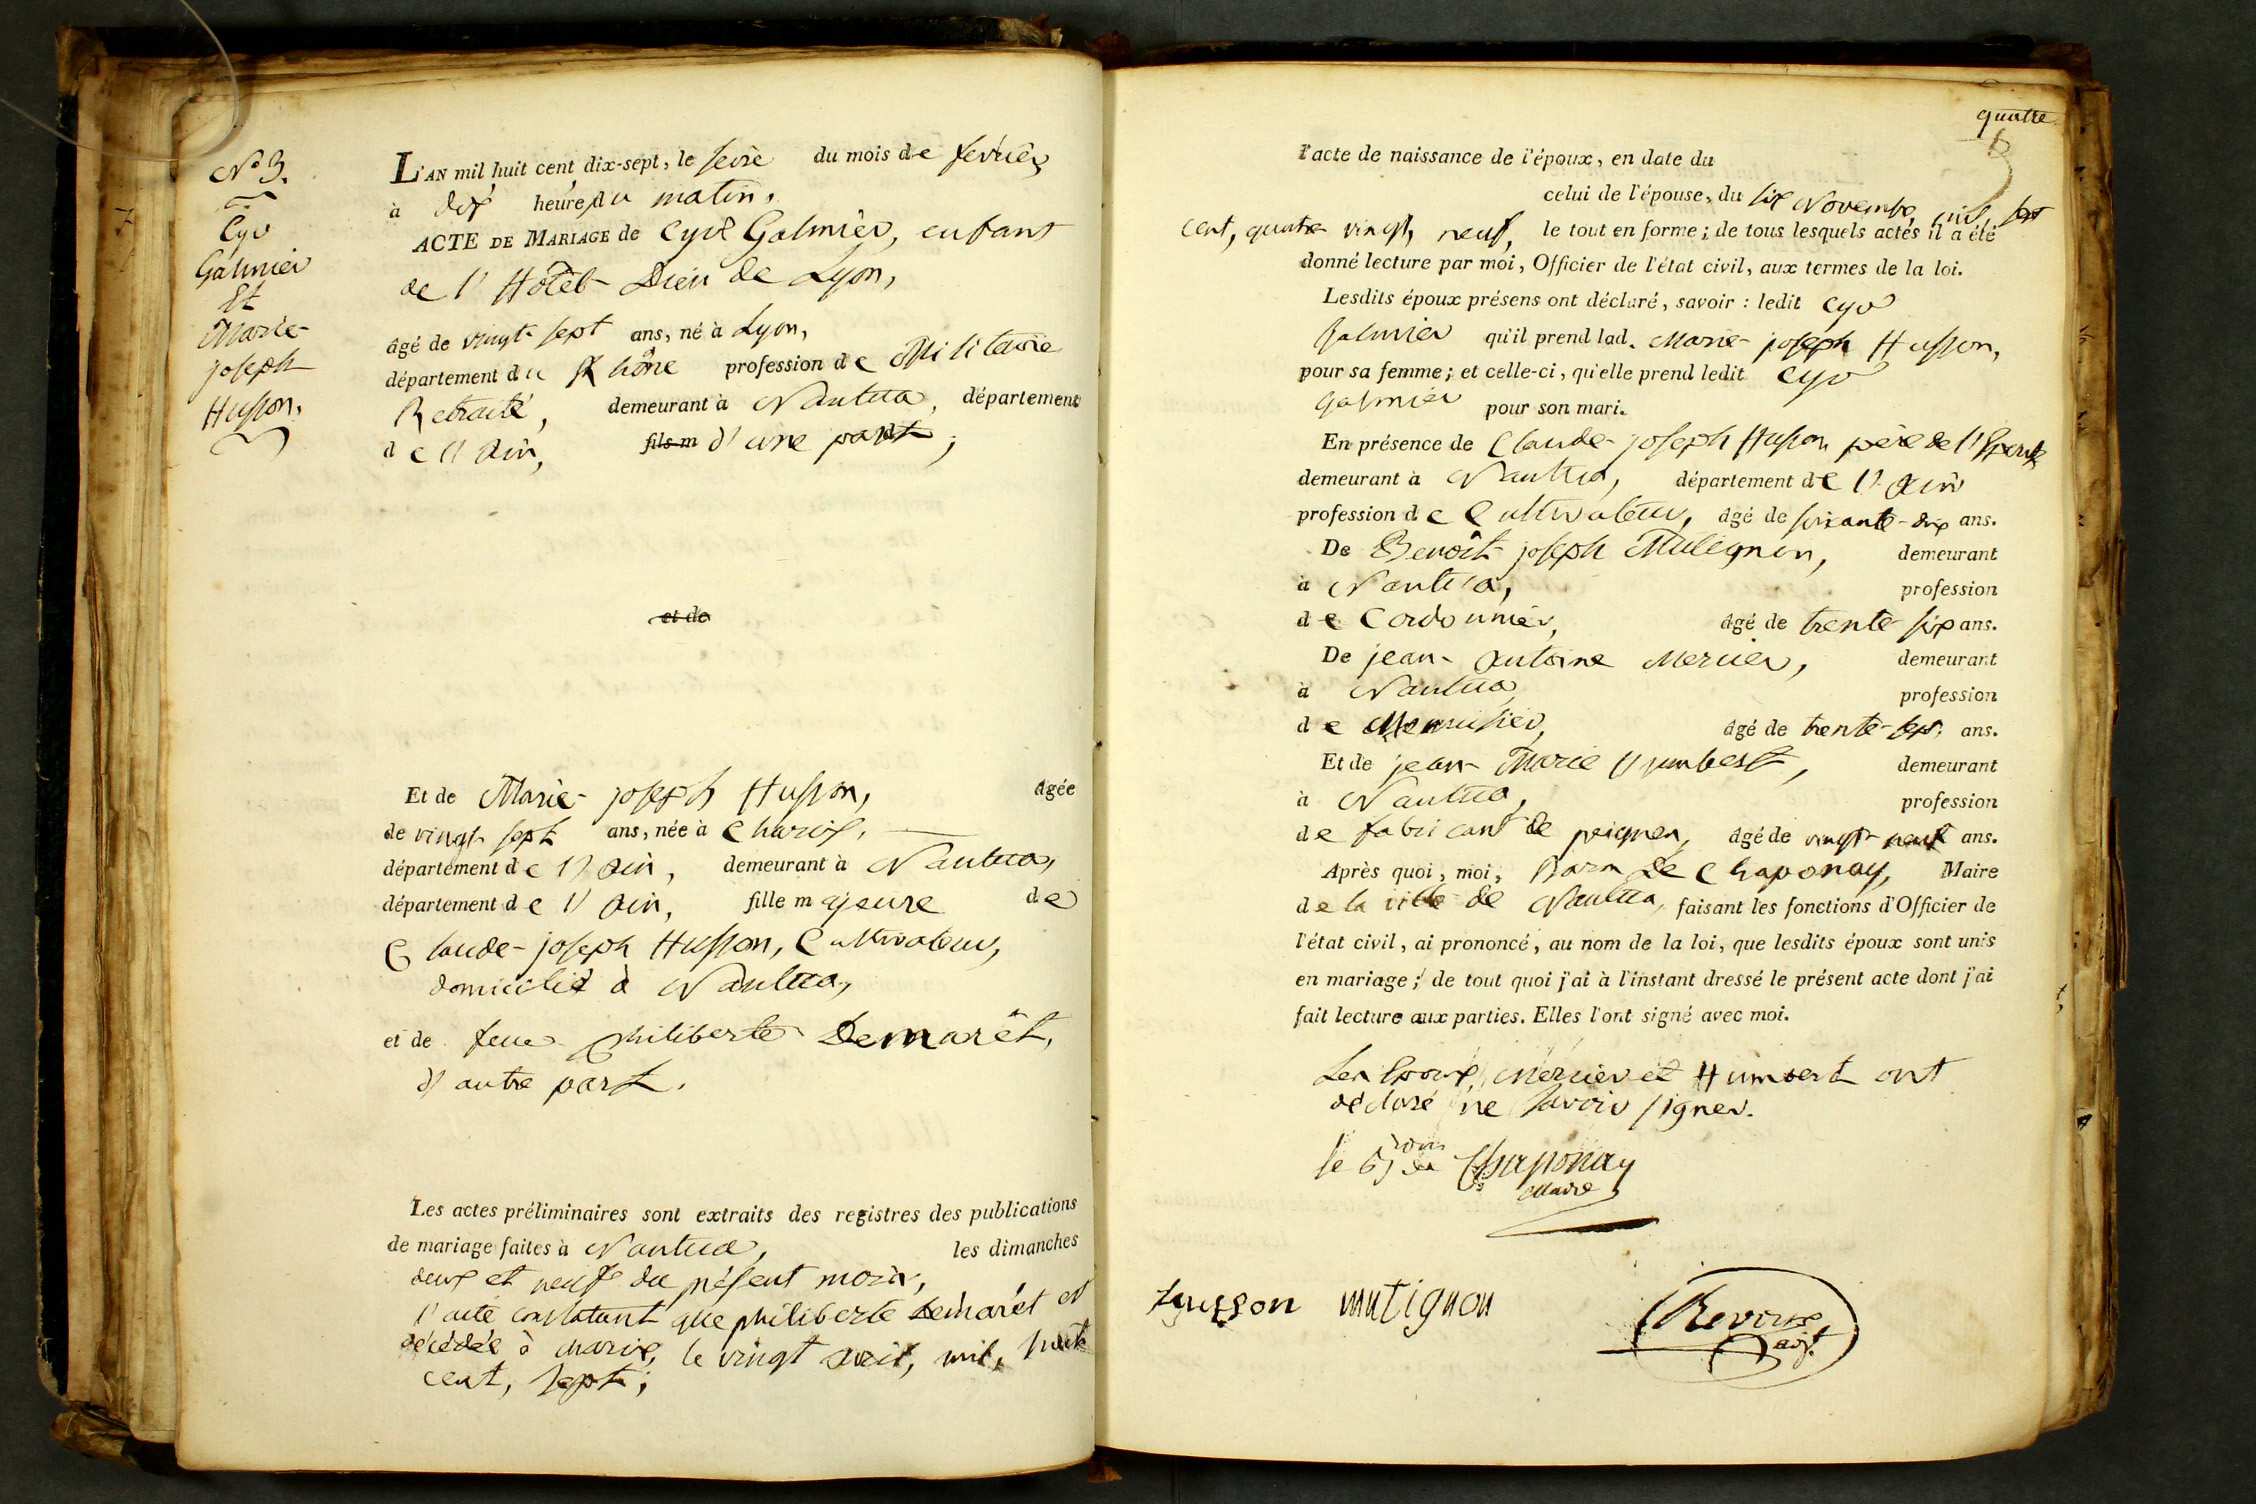 N° 3.
Cyr
Galmier
Et
Marie-
joseph
Husson.
L'AN mil huit cent dix-sept, le seize du mois de fevrier
à dix heures du matin.
ACTE DE MARIAGE de Cyr Galmier, enfant
de l'Hôtel-Dieu de Lyon,
âgé de vingt-sept ans, né à Lyon,
département du Rhône profession de Militaire
Retraité, demeurant à Nantua, département
de l'Ain, fils m d'une part,
et de
Et de Marie-joseph Husson, âgée
de vingt-sept ans, née à Charix,
département de l'Ain, demeurant à Nantua,
département de l'Ain, fille majeure de
Claude-joseph Husson, Cultivateur,
domicilié à Nantua,
et de feue philiberte Demarêt,
d'autre part.
Les actes préliminaires sont extraits des registres des publications
de mariage faites à Nantua, les dimanches
deux et neuf du présent mois,
l'acte constatant que philiberte Demarét est
décédée à charix, le vingt avril, mil, huit
cent, sept;
quatre
l'acte de naissance de l'époux, en date du
celui de l'épouse, du six Novembre, mil, sept
cent, quatre vingt, neuf, le tout en forme; de tous lesquels actes il a été
donné lecture par moi, Officier de l'état civil, aux termes de la loi.
Lesdits époux présens ont déclaré, savoir : ledit Cyr
Galmier qu'il prend lad. Marie-joseph Husson,
pour sa femme; et celle-ci, qu'elle prend ledit Cyr
Galmier pour son mari.
En présence de Claude-joseph Husson père de l'Epouse
demeurant à Nantua, département de l'Ain
profession de Cultivateur, âgé de soixante-dix ans.
De Benoît-joseph Mutignon, demeurant
à Nantua, profession
de Cordonnier, âgé de trente-six ans.
De jean-Antoine Mercier, demeurant
à Nantua, profession
de Menuisier, âgé de trente-sept ans.
Et de jean-Marie humbert, demeurant
à Nantua, profession
de fabricant de peignes, âgé de vingt-neuf ans.
Après quoi, moi, Baron De Chaponay, Maire
de la ville de Nantua, faisant les fonctions d'Officier de
l'état civil, ai prononcé, au nom de la loi, que lesdits époux sont unis
en mariage; de tout quoi j'ai à l'instant dressé le présent acte dont j'ai
fait lecture aux parties. Elles l'ont signé avec moi.
Les Epoux, Mercier et Humbert ont
déclaré ne savoir signer.
le Bon de Chaponay
Maire
husson mutignon
adj.t